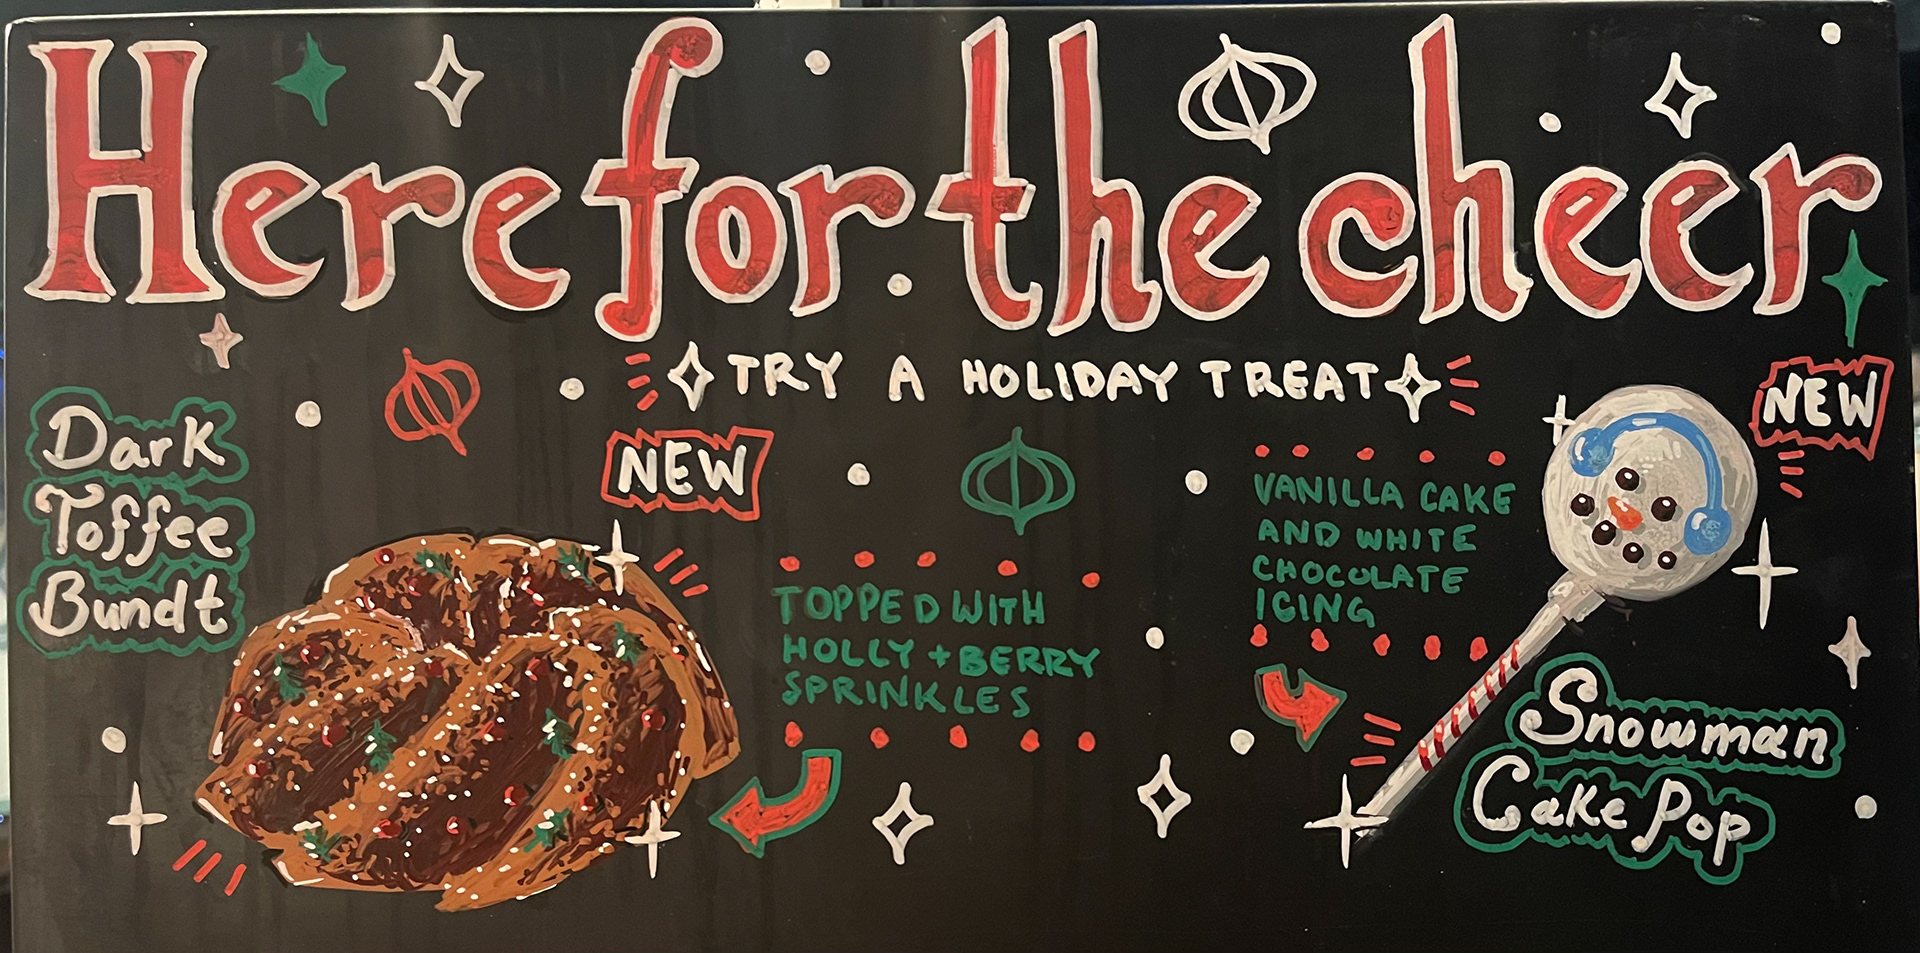 Here for the cheer
TRY A HOLIDAY TREAT
Dark
Toffee
Bundt
NEW
TOPPED WITH
HOLLY + BERRY
SPRINKLES
VANILLA CAKE
AND WHITE
CHOCOLATE
ICING
NEW
Snowman
Cake Pop